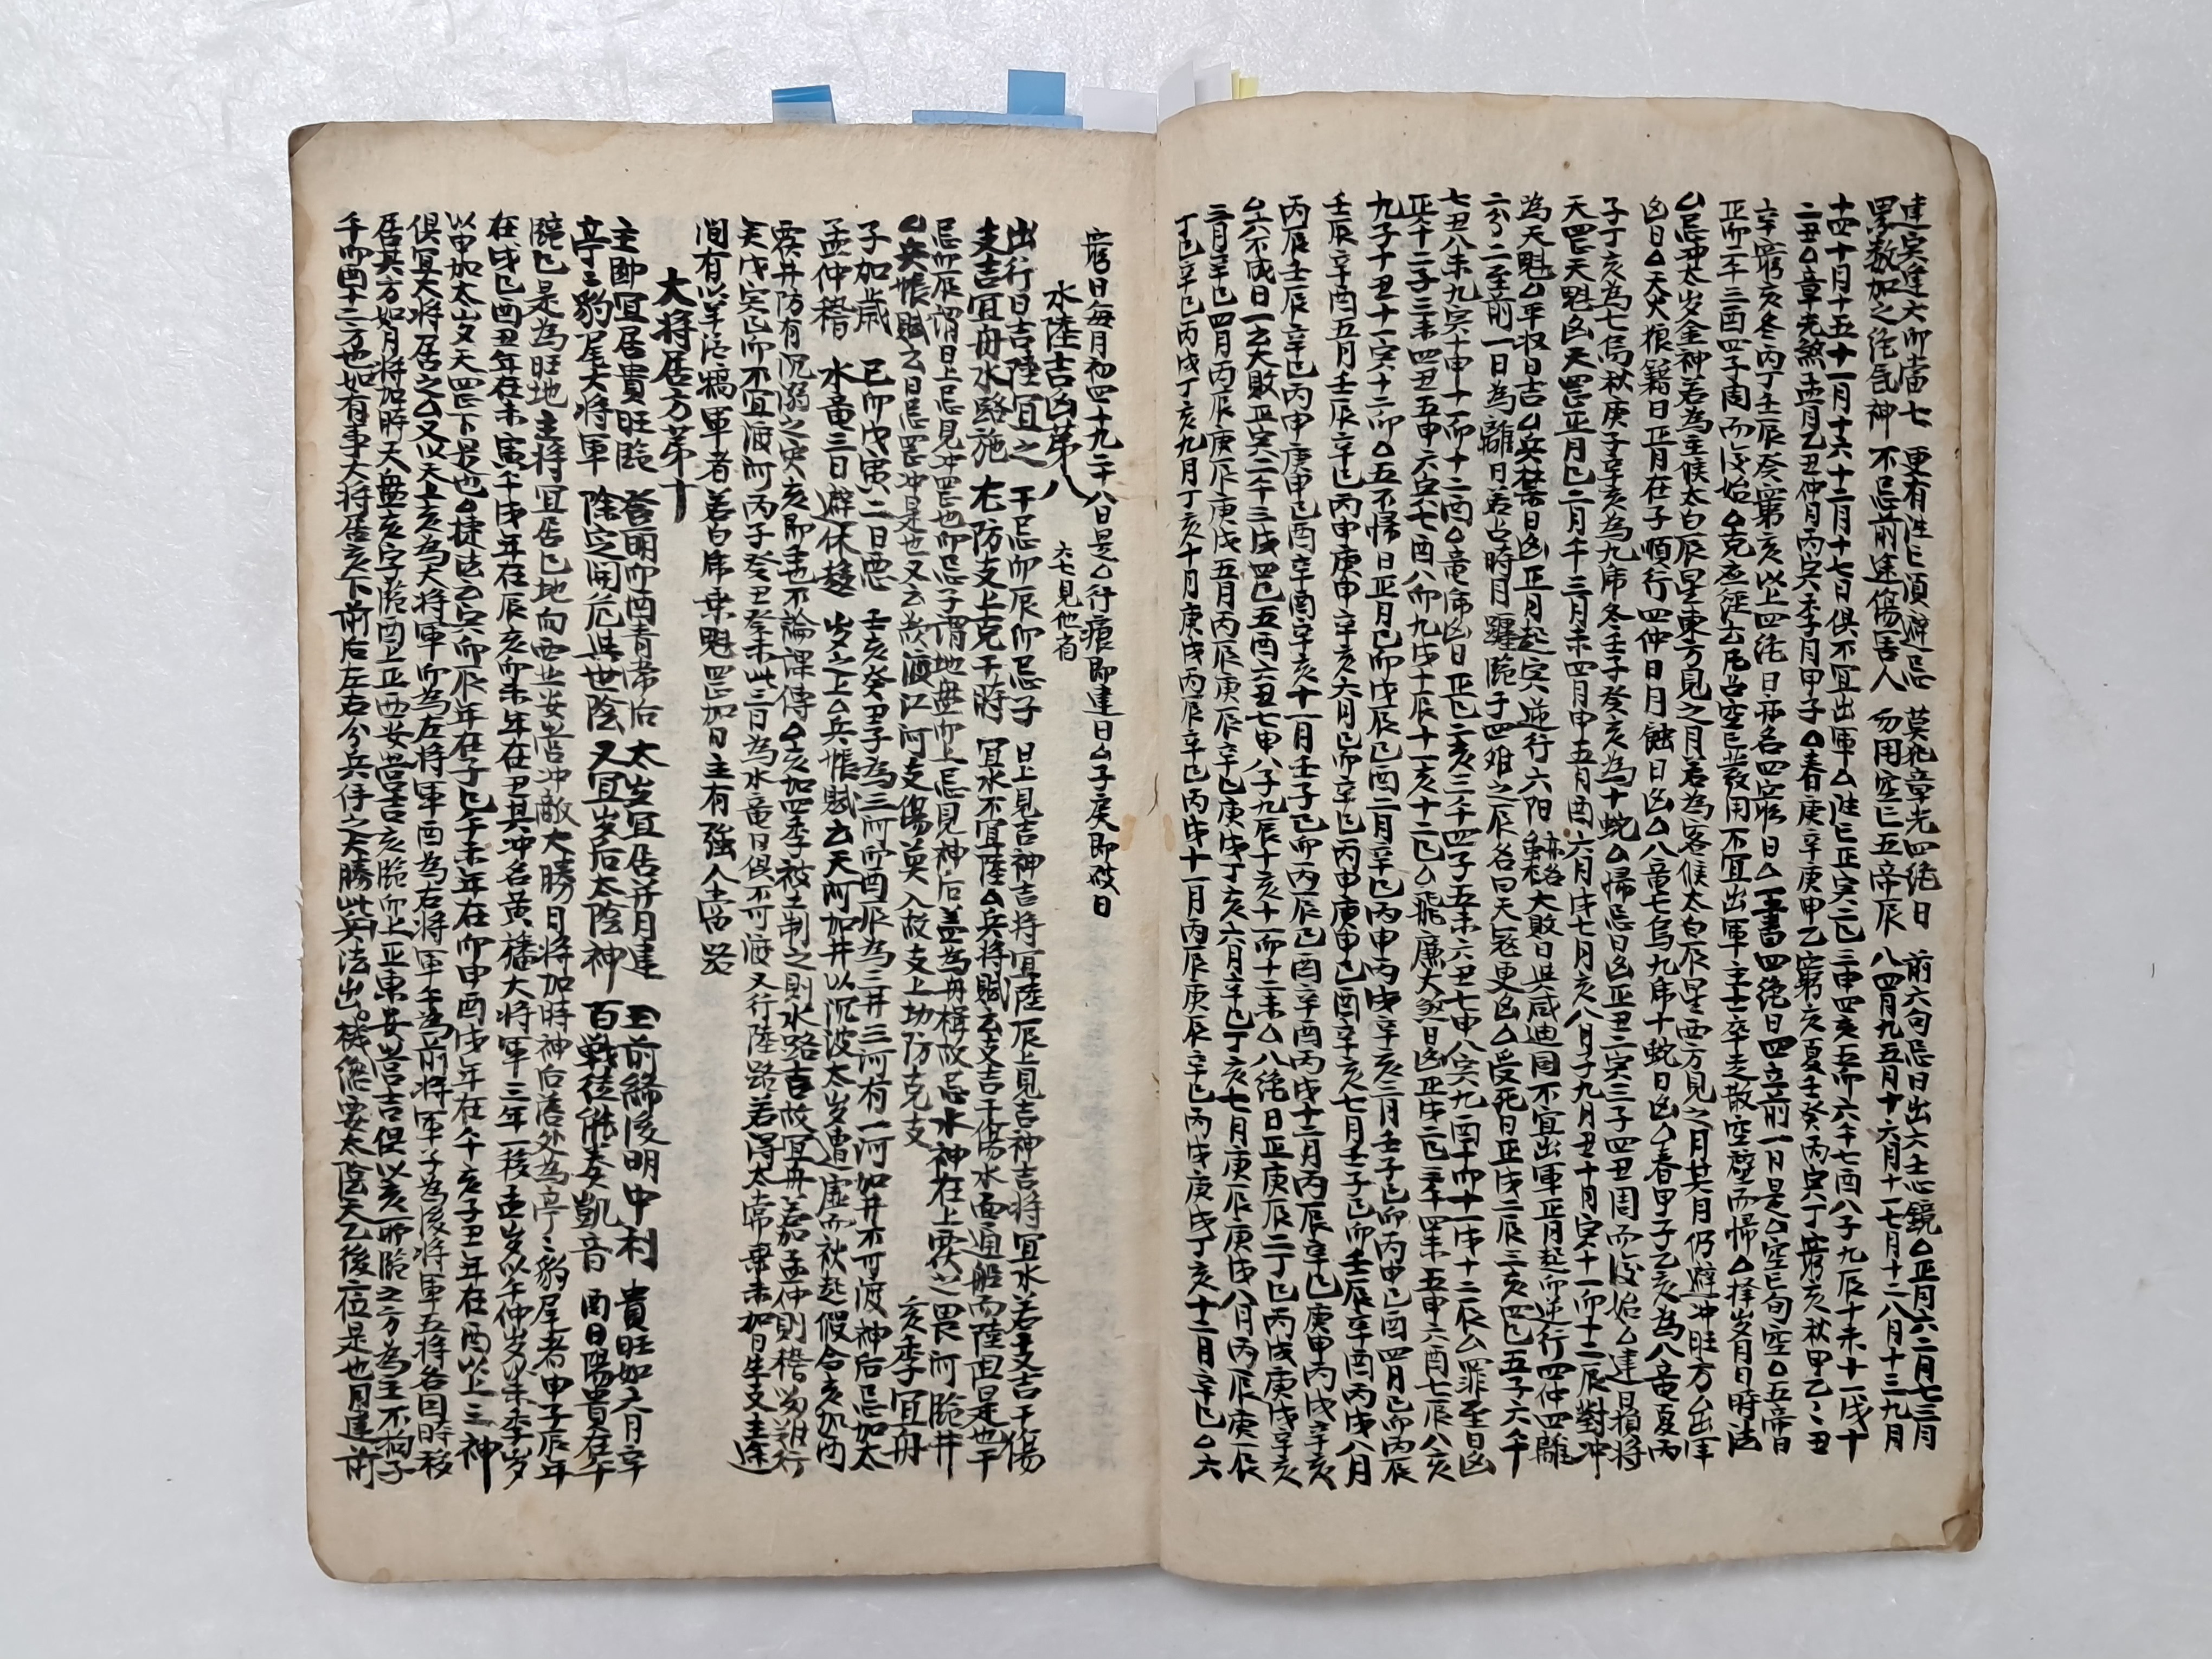 建寅逢六卯當七 更有往亡須避忌 莫犯章光四絶日 前六句忌日出六壬心鏡△正月六二月七三月
累数加之絶氣神 不忌前途傷害人 勿用空亡五帝辰 八四月九五月十六月十一七月十二八月十三九月
十四十月十五十一月十六十二月十七日俱不宜出軍△往亡正寅二巳三申四亥五卯六午七酉八子九辰十未十一戌十
二丑△章光煞孟月乙丑仲月丙寅季月甲子△春庚辛庚甲乙窮亥夏壬癸丙寅丁窮亥秋甲乙丑
辛窮亥冬丙丁壬辰癸窮亥以上四絶日亦名四窮日△玉書四絶日四立前一日是△空亡旬空△五帝日
正卯二午三酉四子周而復始△克應經云凡占空亡並發用不宜出軍主士卒走散空壁而歸△擇歲月日時法
△忌冲太岁金神若為主候太白辰星東方見之月若為客候太白辰星西方見之月其月仍避冲旺方△出軍
凶日△天火狼籍日正月在子順行四仲日月蝕日凶△八竜七烏九乕十蛇日凶△春甲子乙亥為八竜夏丙
子丁亥為七烏秋庚子辛亥為九乕冬壬子癸亥為十蛇△歸忌日凶正丑二寅三子四丑周而復始△建日損將
天罡天魁凶天罡正月巳二月子三月未四月申五月酉六月戌七月亥八月子九月丑十月寅十一卯十二辰對冲
為天魁△平収日吉△兵禁日凶正月起寅逆行六陽 大敗日與咸池同不宜出軍正月起卯逆行四仲四離
二分二至前一日為離日若占時月躔臨于四離之辰名曰天寇更凶△受死日正戌二辰三亥四巳五子六午
七丑八未九寅十申十一卯十二酉△竜乕凶日正巳二亥三午四子五未六丑七申八寅九酉十卯十一戌十二辰△罪至日凶
正午二子三未四丑五申六寅七酉八卯九戌十辰十一亥十二巳△飛廉大煞日凶正戌二巳三午四未五申六酉七辰八亥
九子十丑十一寅十二卯△五不歸日正月己卯戊辰己酉二月辛巳丙申丙戌辛亥三月壬子己卯丙申己酉四月己卯丙辰
壬辰辛酉五月壬辰辛巳丙申庚申辛亥六月己卯辛巳丙申庚申己酉辛亥七月壬子己卯壬辰辛酉丙戌八月
丙辰壬辰辛巳丙申庚申己酉辛酉辛亥十一月壬子己卯丙辰己酉辛酉丙戌十二月丙辰辛巳庚申丙戌辛亥
△六不成日一云大敗正寅二午三戌四巳五酉六丑七申八子九辰十亥十一卯十二未△八絶日正庚辰二丁巳丙戌庚戌辛亥
三月辛巳四月丙辰庚辰庚戌五月丙辰庚辰辛巳庚戌丁亥六月辛巳丁亥七月庚辰庚戌八月丙辰庚辰
丁巳辛巳丙戌丁亥九月丁亥十月庚戌丙辰辛巳丙戌十一月丙辰庚辰辛巳丙戌庚戌丁亥十二月辛巳△六
窮日每月初四十九二十八日是△行痕即建日△子戾即破日
水陸吉凶第八 六七見他省
出行日吉陸宜之 干忌卯辰卯忌子 日上見吉神吉將宜陸辰上見吉神吉將宜水若支吉干傷
支吉宜舟水路施 尤防支上克干蒔 宜水不宜陸△兵將賦云支吉干傷水面通船而陸直是也干
忌卯辰謂日上忌見冲罡也卯忌子謂地盤卯上忌見神后盖為舟楫故忌水神在上䨱之畏河臨井
△兵帳賦云日忌罡冲是也又云欲渡江河支傷莫入故支上切防克支 亥季宜舟
子加歲 己卯戊寅二日惡 壬亥癸丑子為三河卯酉辰為三井三河有一河加井不可渡神后忌加太
孟仲稽 水竜三日避休趍 岁之上△兵帳賦云天河加井以沉波太岁遭虛而秋赴假令亥加酉
䨱井防有沉溺之灾亥即吉也不論課傳△亥加四季被土制之則水路吉故宜舟若加孟仲則稽留難行
矣戊寅己卯不宜渡河丙子癸丑癸未此三日為水竜日俱不可渡又行陸路若得太常乗未加日生支主途
間有以羊酒犒軍者若白乕乗魁罡加日主有強人當路
大將居方第十
主帥宜居貴旺臨 登明卯酉青帝后 太岁宜居并月建 王前絳後明中利 貴旺如六月辛
亭亭豹尾大将軍 除定開危與世陰 又宜岁后太陰神 百戰徒能奏凱音 酉日陽貴在午
臨巳是為旺地主將宜居巳地向西北安營冲敵大勝月將加時神后落处為亭亭豹尾者申子辰年
在戌巳酉丑年在未寅午戌年在辰亥卯未年在丑其冲名黄旛大将軍三年一移孟岁以午仲岁以未季岁
以申加太岁天罡下是也△捷法云寅卯辰年在子巳午未年在卯申酉戌年在午亥子丑年在酉以上三神
俱宜大將居之△又以天上亥為大将軍卯為左将軍酉為右将軍午為前将軍子為後将軍五将各因時移
居其方如月將加時天盤亥字臨酉上正西安營吉亥臨卯上正東安營吉俱以亥所臨之方為主不拘子
午卯酉十二方也如有事大将居亥下前后左右分兵待之大勝此兵法出 機儘安太陰天乙後二位是也月建前